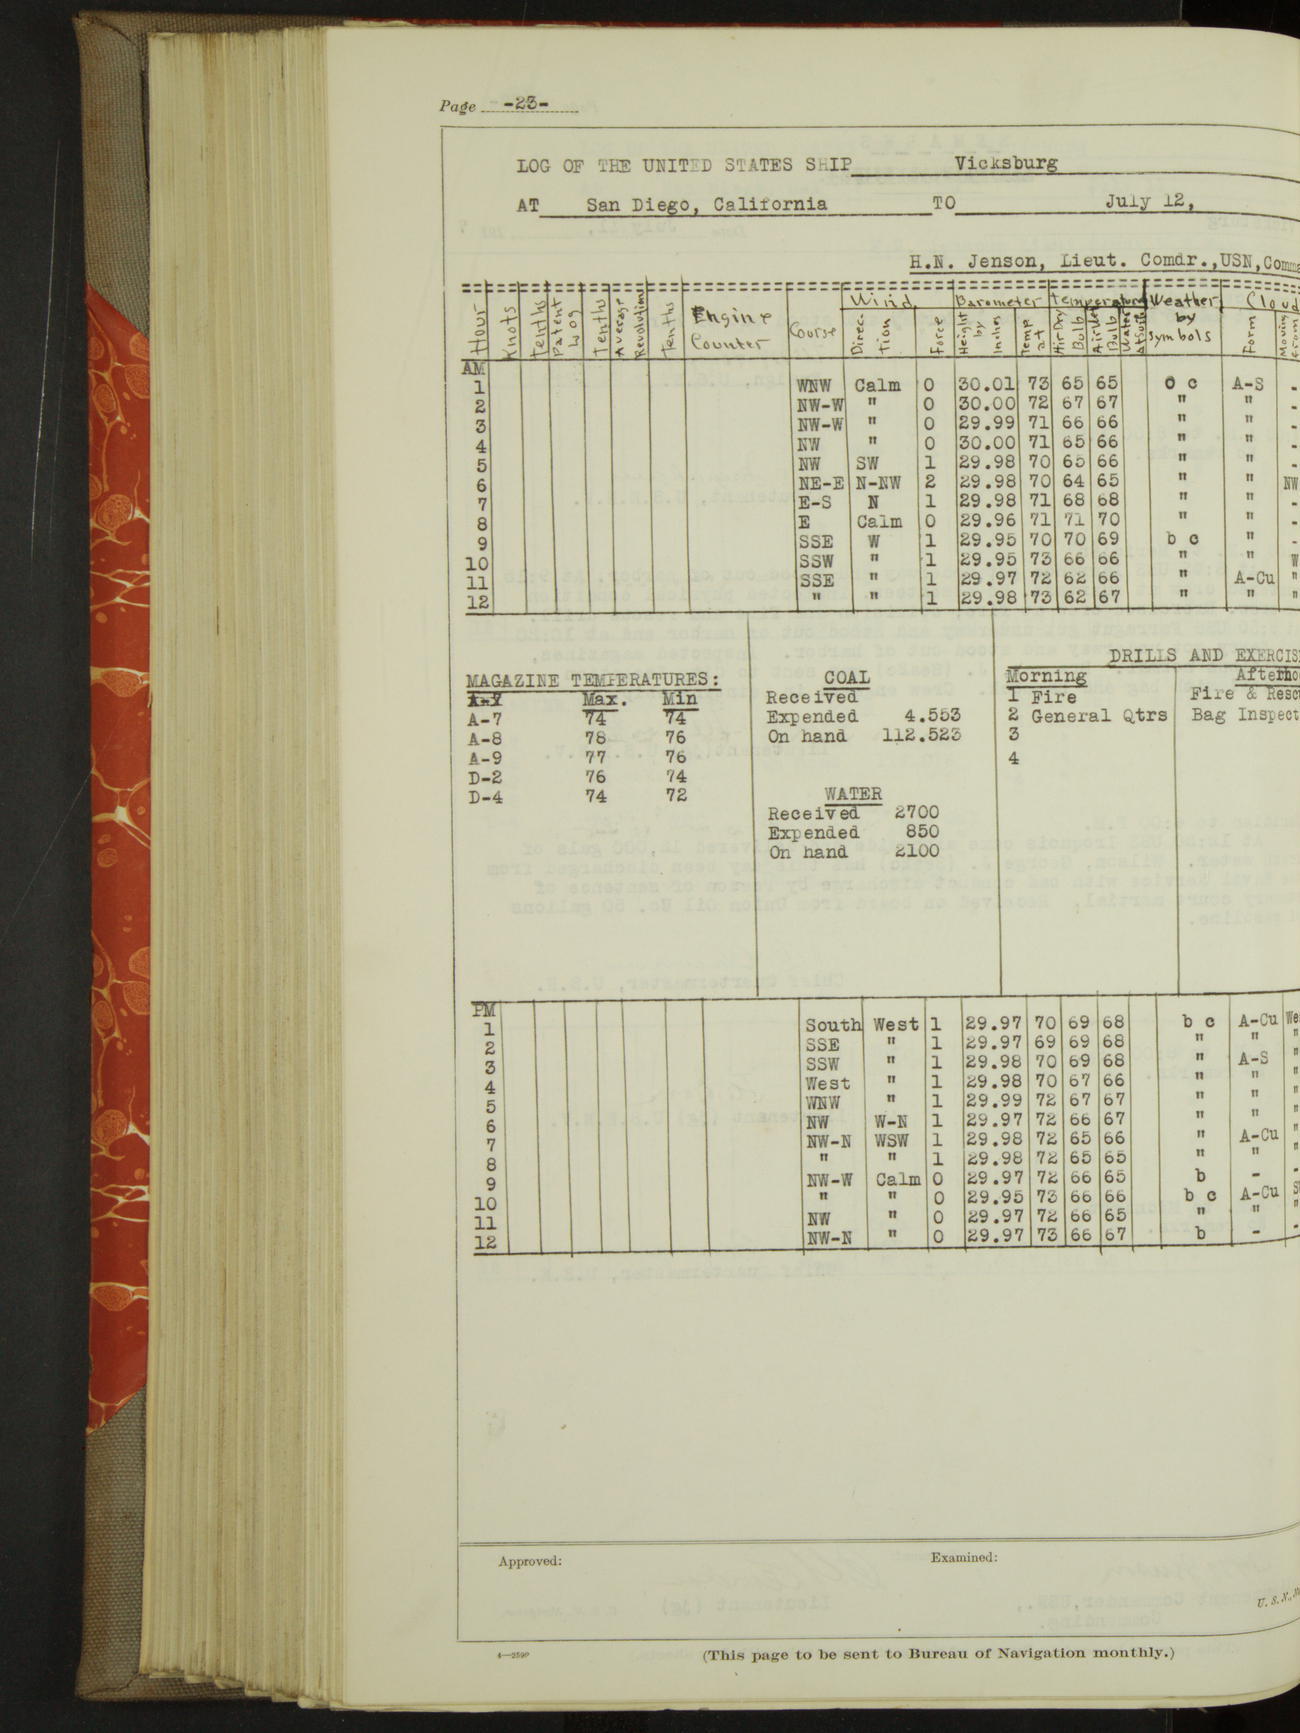 Page -23-
LOG OF THE UNITED STATES SHIP Vicksburg
AT San Diego, California TO July 12,
H.N. Jenson, Lieut. Comdr.,USN,Comma
Hour Knots Tenths Patent Log Tenths Average Revolutions Tenths Engine Counter Course Wind Direc-tion Force Barometer Height by Inches Temp at Temperature Air Dry Bulb Air Wet Bulb Water at Surf Weather by Symbols Cloud Form Moving from
AM
1 WNW Calm 0 30.01 73 65 65 O c A-S -
2 NW-W " 0 30.00 72 67 67 " " -
3 NW-W " 0 29.99 71 66 66 " " -
4 NW " 0 30.00 71 65 66 " " -
5 NW SW 1 29.98 70 65 66 " " -
6 NE-E N-NW 2 29.98 70 64 65 " " NW
7 E-S N 1 29.98 71 68 68 " " -
8 E Calm 0 29.96 71 71 70 " " -
9 SSE W 1 29.95 70 70 69 b c " -
10 SSW " 1 29.95 73 66 66 " " W
11 SSE " 1 29.97 72 62 66 " A-Cu "
12 " " 1 29.98 73 62 67 " " "
DRILLS AND EXERCIS
MAGAZINE TEMPERATURES: COAL Morning Afterno
Max. Min Received 1 Fire Fire & Resc
A-7 74 74 Expended 4.553 2 General Qtrs Bag Inspect
A-8 78 76 On hand 112.523 3
A-9 77 76 4
D-2 76 74
D-4 74 72 WATER
Received 2700
Expended 850
On hand 2100
PM
1 South West 1 29.97 70 69 68 b c A-Cu We
2 SSE " 1 29.97 69 69 68 " " "
3 SSW " 1 29.98 70 69 68 " A-S "
4 West " 1 29.98 70 67 66 " " "
5 WNW " 1 29.99 72 67 67 " " "
6 NW W-N 1 29.97 72 66 67 " " "
7 NW-N WSW 1 29.98 72 65 66 " A-Cu "
8 " " 1 29.98 72 65 65 " " "
9 NW-W Calm 0 29.97 72 66 65 b - -
10 " " 0 29.95 73 66 66 b c A-Cu S
11 NW " 0 29.97 72 66 65 " " "
12 NW-N " 0 29.97 73 66 67 b - -
Approved: Examined:
U. S. N.,
4—2599
(This page to be sent to Bureau of Navigation monthly.)